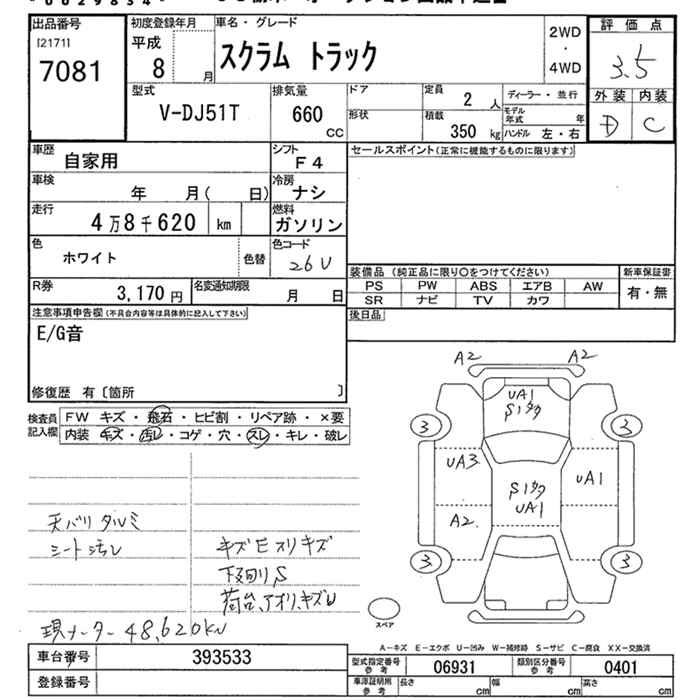 出品番号
[2171]
7081
初度登録年月
平成
8 月
車名・グレード
スクラム トラック
2WD
・
4WD
評価点
3.5
外装 内装
D C
型式
V-DJ51T
排気量
660
CC
ドア
形状
定員
2 人
積載
350 kg
ディーラー・並行
モデル年式 年
ハンドル 左・右
車歴
自家用
シフト
F4
車検
年 月( 日)
冷房
ナシ
走行
4万8千620 km
燃料
ガソリン
色
ホワイト
色替
色コード
26U
R券
3,170円
名変通知期限
月 日
セールスポイント(正常に機能するものに限ります)
装備品(純正品に限り○をつけてください)
PS PW ABS エアB AW
SR ナビ TV カワ
新車保証書
有・無
後日品
注意事項申告欄(不具合内容等は具体的に記入して下さい)
E/G音
修復歴 有〔箇所 〕
検査員記入欄
FW キズ・飛石・ヒビ割・リペア跡・×要
内装 キズ・汚レ・コゲ・穴・スレ・キレ・破レ
天バリ タルミ
シート汚レ
キズ E スリキズ
下回りS
荷台、アオリ、キズU
現メーター 48,620km
A2 A2
UA1
S1タタ
3 3
UA3
UA1
S1タタ
UA1
A2
3 3
スペア
A-キズ E-エクボ U-凹み W-補修跡 S-サビ C-腐食 XX-交換済
車台番号
393533
登録番号
型式指定番号
参考
06931
類別区分番号
参考
0401
車庫証明用
参考
長さ cm
幅 cm
高さ cm